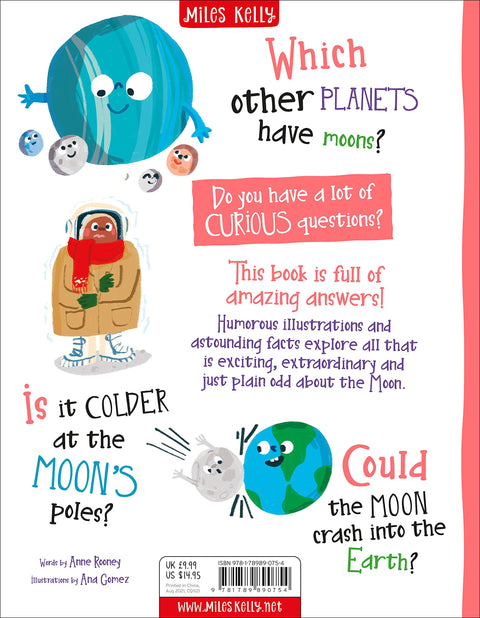 Miles Kelly
Which
other PLANETS
have moons?
Do you have a lot of
CURIOUS questions?
This book is full of
amazing answers!
Humorous illustrations and
astounding facts explore all that
is exciting, extraordinary and
just plain odd about the Moon.
Is it COLDER
at the
MOON'S
poles?
Could
the MOON
crash into the
Earth?
Words by Anne Rooney
Illustrations by Ana Gomez
UK £9.99
US $14.95
Printed in China,
ISBN 978-1-78989-075-4
9 781789 890754
www.MilesKelly.net